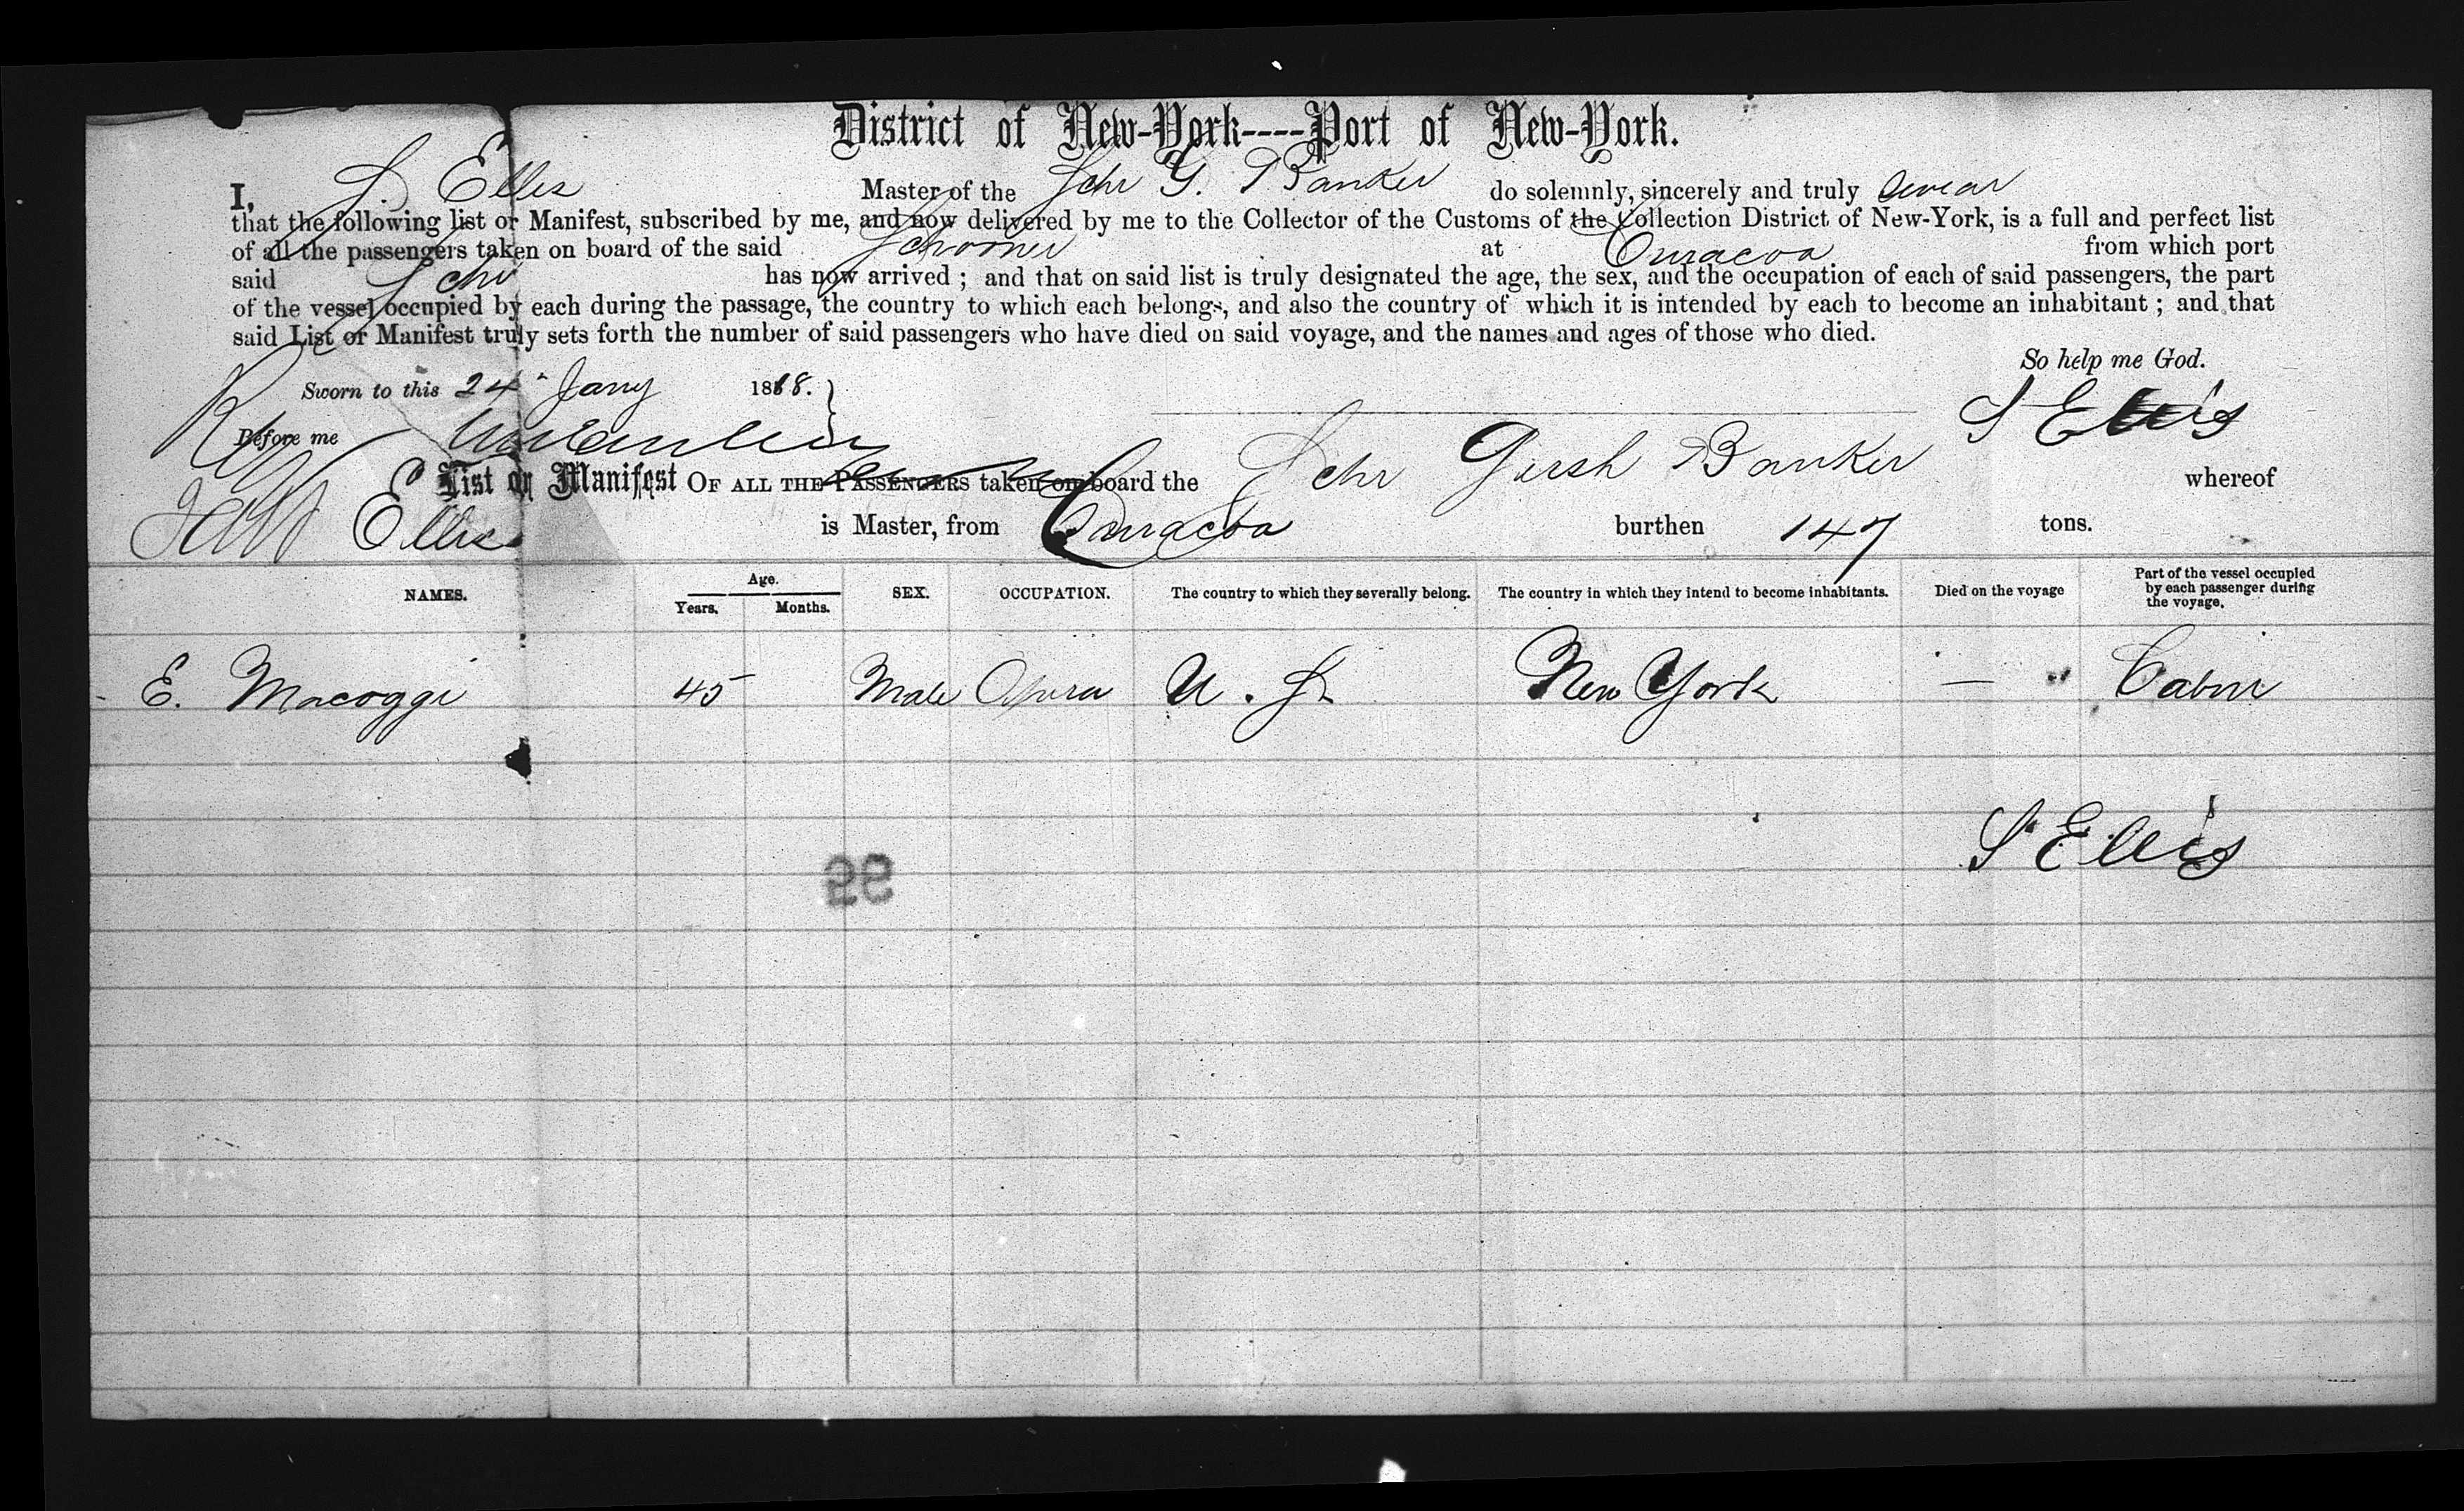 District of New-York----Port of New-York.
I, S. Ellis Master of the Schr G. Banker do solemnly, sincerely and truly swear
that the following list or Manifest, subscribed by me, and now delivered by me to the Collector of the Customs of the Collection District of New-York, is a full and perfect list
of all the passengers taken on board of the said Schooner at Curacoa from which port
said Schr has now arrived ; and that on said list is truly designated the age, the sex, and the occupation of each of said passengers, the part
of the vessel occupied by each during the passage, the country to which each belongs, and also the country of which it is intended by each to become an inhabitant ; and that
said List or Manifest truly sets forth the number of said passengers who have died on said voyage, and the names and ages of those who died.
So help me God.
Sworn to this 24 Jany 1868.
S Ellis
Before me
List or Manifest OF ALL THE PASSENGERS taken on board the Schr Gersh Banker whereof
Ellis is Master, from Curacoa burthen 147 tons.
NAMES. Age. Years. Months. SEX. OCCUPATION. The country to which they severally belong. The country in which they intend to become inhabitants. Died on the voyage Part of the vessel occupied by each passenger during the voyage.
E. Macoggi 45 Male Opera U. S. New York — " Cabin
S Ellis